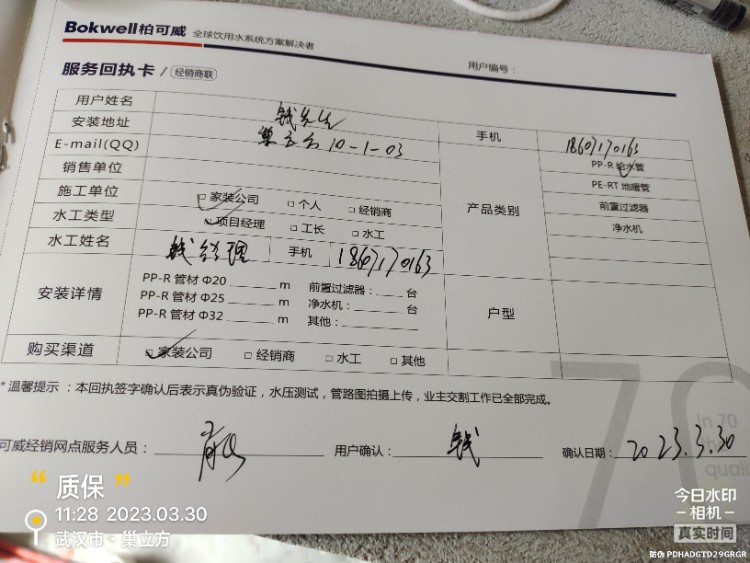 Bokwell柏可威 全球饮用水系统方案解决者
服务回执卡 / 经销商联
用户编号：
用户姓名 钱先生
安装地址 巢立方 10-1-03
手机 18671170163
E-mail(QQ)
销售单位
产品类别
PP-R 给水管
PE-RT 地暖管
前置过滤器
净水机
施工单位 家装公司 个人 经销商
水工类型 项目经理 工长 水工
水工姓名 钱经理 手机 18671170163
安装详情
PP-R 管材 Φ20 m 前置过滤器： 台
PP-R 管材 Φ25 m 净水机： 台
PP-R 管材 Φ32 m 其他：
户型
购买渠道 家装公司 经销商 水工 其他
* 温馨提示：本回执签字确认后表示真伪验证，水压测试，管路图拍摄上传，业主交割工作已全部完成。
70
In 70
quali
可威经销网点服务人员：
用户确认： 钱
确认日期： 2023.3.30
“ 质保 ”
11:28 2023.03.30
武汉市·巢立方
今日水印
相机
真实时间
防伪 PDHADGTD29GRGR